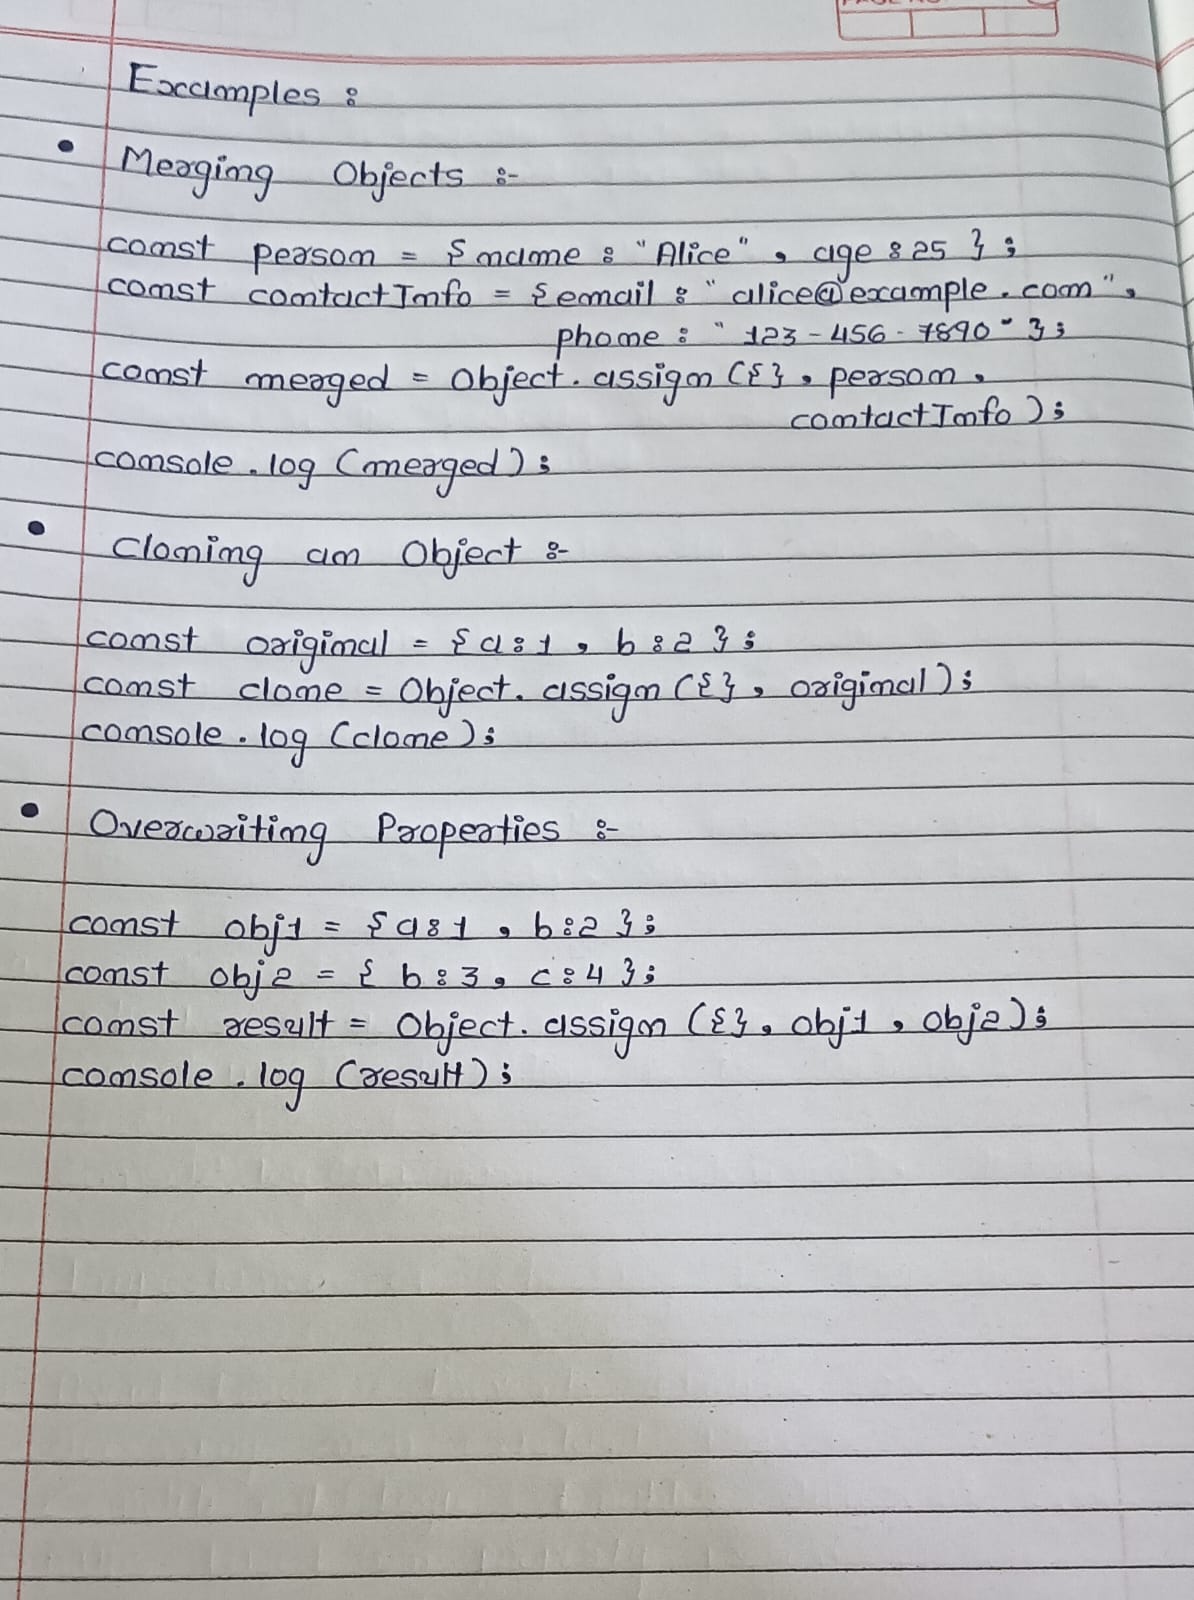 Examples :
• Merging Objects :-
const person = { name : "Alice" , age : 25 } ;
const contactInfo = { email : "alice@example.com" ,
phone : "123-456-7890" } ;
const merged = Object.assign ( { } , person ,
contactInfo ) ;
console.log (merged) ;
• Cloning an Object :-
const original = { a : 1 , b : 2 } ;
const clone = Object.assign ( { } , original ) ;
console.log (clone) ;
• Overwriting Properties :-
const obj1 = { a : 1 , b : 2 } ;
const obj2 = { b : 3 , c : 4 } ;
const result = Object.assign ( { } , obj1 , obj2 ) ;
console.log (result) ;